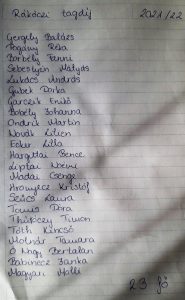 Rákóczi tagdíj 2021/22
Gergely Balázs
Pogány Réka
Borbély Fanni
Sebestyén Mátyás
Lukács András
Gubek Dorka
Garozik Enikő
Bobély Johanna
Ondrik Martin
Novák Lilien
Ecker Lilla
Hargittai Bence
Liptai Noémi
Mádai Csenge
Hronyecz Kristóf
Szűcs Laura
Tomus Dóra
Thüköczy Timon
Tóth Kincső
Molnár Tamara
Ó Nagy Bertalan
Babinecz Janka
Magyari Máté
23 fő